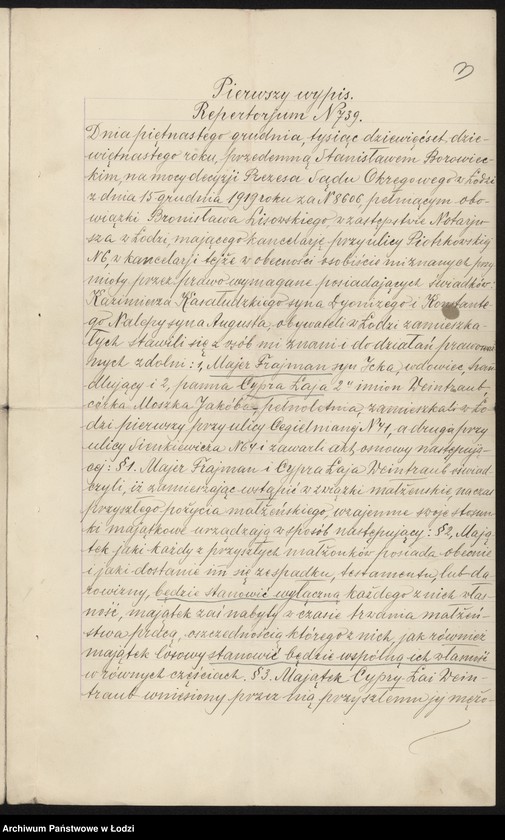 3
Pierwszy wypis.
Repertorjum N 739.
Dnia piętnastego grudnia, tysiąc dziewięćset dzie-
więtnastego roku, przedemną Stanisławem Borowiec-
kim, na mocy decyzji Prezesa Sądu Okręgowego w Łodzi
z dnia 15 grudnia 1919 roku za N 8606, pełniącym obo-
wiązki Bronisława Lisowskiego, w zastępstwie Notarju-
sza w Łodzi, mającego kancelarję przy ulicy Piotrkowskiej
N6, w kancelarji tejże w obecności osobiście mi znanych przy
mioty przez prawo wymagane posiadających świadków:
Kazimierza syna Dyonizego i Konstante-
go Nalepy syna Augusta, obywateli w Łodzi zamieszka-
łych stawili się z osób mi znani i do działań prawnni
nych zdolni: 1, Majer Frajman syn Icka, wdowiec, han
dlujący i 2, panna Cypra Łaja 2ch imion Weintraub
córka Moszka Jakóba pełnoletnia, zamieszkali w Ło
dzi pierwszy przy ulicy Cegielnianej N 41, a druga przy
ulicy Sienkiewicza N 64 i zawarli akt umowy następują-
cej: §1. Majer Frajman i Cypra Łaja Weintraub oświad
czyli, iż zamierzając wstąpić w związki małżeńskie, na czas
przyszłego pożycia małżeńskiego, wzajemne swoje stosun
ki majątkowe urządzają w sposób następujący: §2, Mają
tek jaki każdy z przyszłych małżonków posiada obecnie
i jaki dostanie im się ze spadku, testamentu, lub da
rowizny, będzie stanowić wyłączną każdego z nich włas-
ność, majątek zaś nabyty w czasie trwania małżeń-
stwa pracą, oszczędnością któregoś z nich, jak również
majątek losowy stanowić będzie wspólną ich własność
w równych częściach. §3. Majątek Cypry Łai Wein-
traub wniesiony przez nią przyszłemu jej mężo-
Archiwum Państwowe w Łodzi